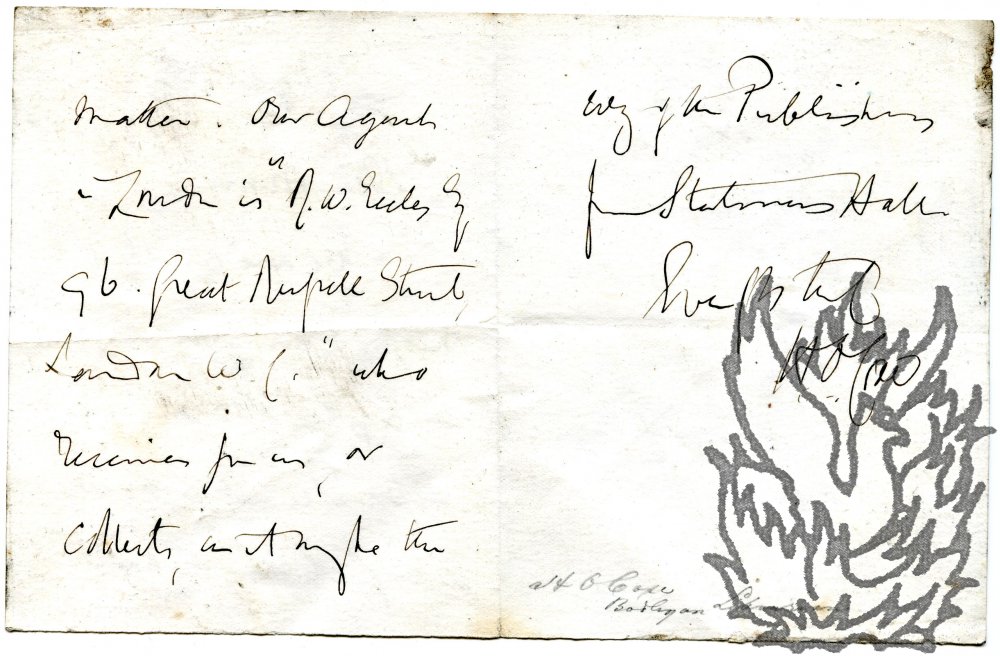 matter. Our Agent
in London is "R. W. Eccles Esq
96. Great Russell Street,
London W. C." who
receives for us, or
collects, as it may be the
of the Publishers
from Stationers Hall.
H. O. Coxe
H O Coxe
Bodleyan Librarian